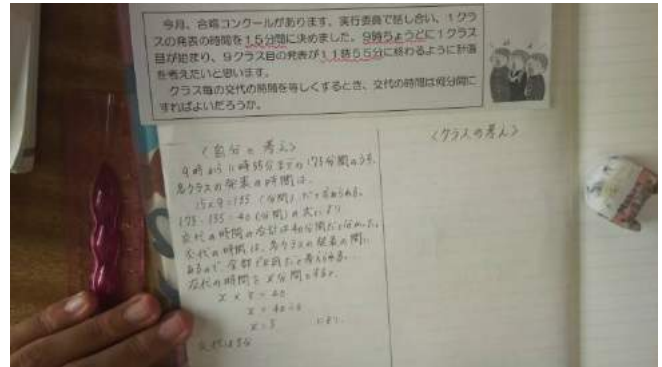 今月、合唱コンクールがあります。実行委員で話し合い、1クラ
スの発表の時間を15分間に決めました。9時ちょうどに1クラス
目が始まり、9クラス目の発表が11時55分に終わるように計画
を考えたいと思います。
クラス毎の交代の時間を等しくするとき、交代の時間は何分間に
すればよいだろうか。
〈自分の考え〉
9時から11時55分までの175分間のうち
各クラスの発表の時間は、
15×9=135(分間)だと求められる。
175-135=40(分間)の式により
交代の時間の合計は40分間だと分かった。
交代の時間は、各クラスの発表の間に
あるので、全部で8回だと考えられる。
交代の時間をx分間とすると、
x×8=40
x=40÷8
x=5
交代は5分
〈クラスの考え〉